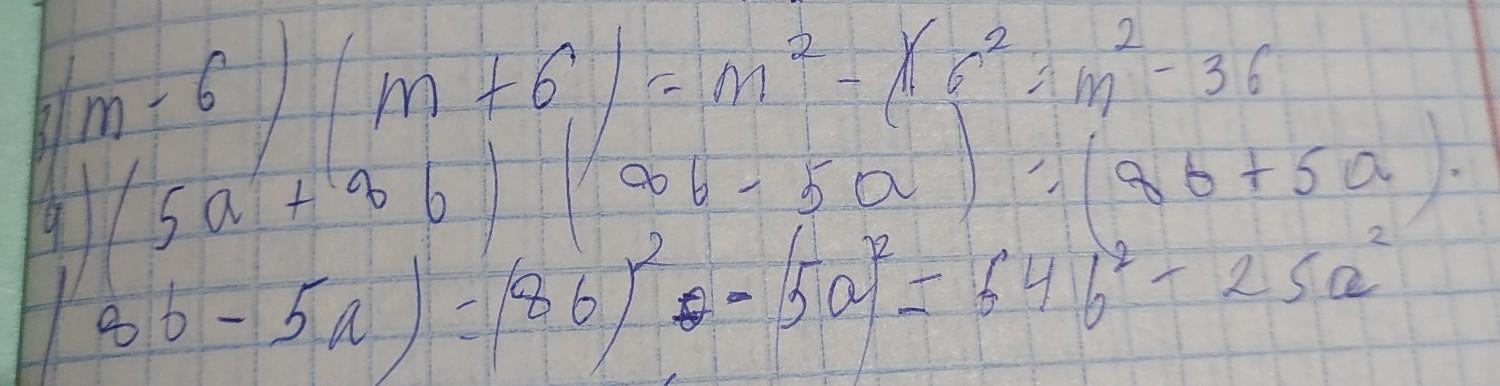 3) (m - 6) (m + 6) = m² - 6² = m² - 36
4) (5a + 8b) (8b - 5a) = (8b + 5a) ·
(8b - 5a) = (8b)² - (5a)² = 64b² - 25a²